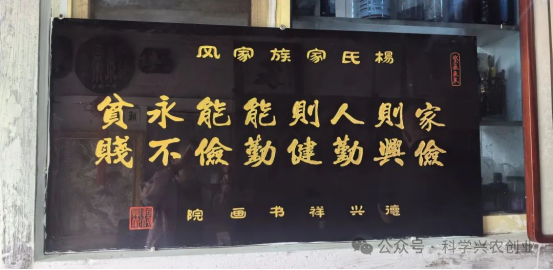 楊氏家族家风
家儉
則興
人勤
則健
能勤
能儉
永不
貧賤
德兴祥书画院
公众号 · 科学兴农创业